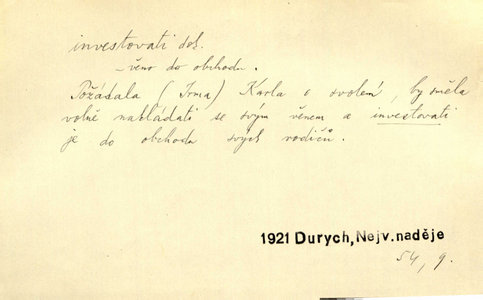 investovati dok.
– věno do obchodu.
Požádala (Irma) Karla o svolení, by směla
volně nakládati se svým věnem a investovati
je do obchodu svých rodičů.
1921 Durych, Nejv. naděje
54, 9.